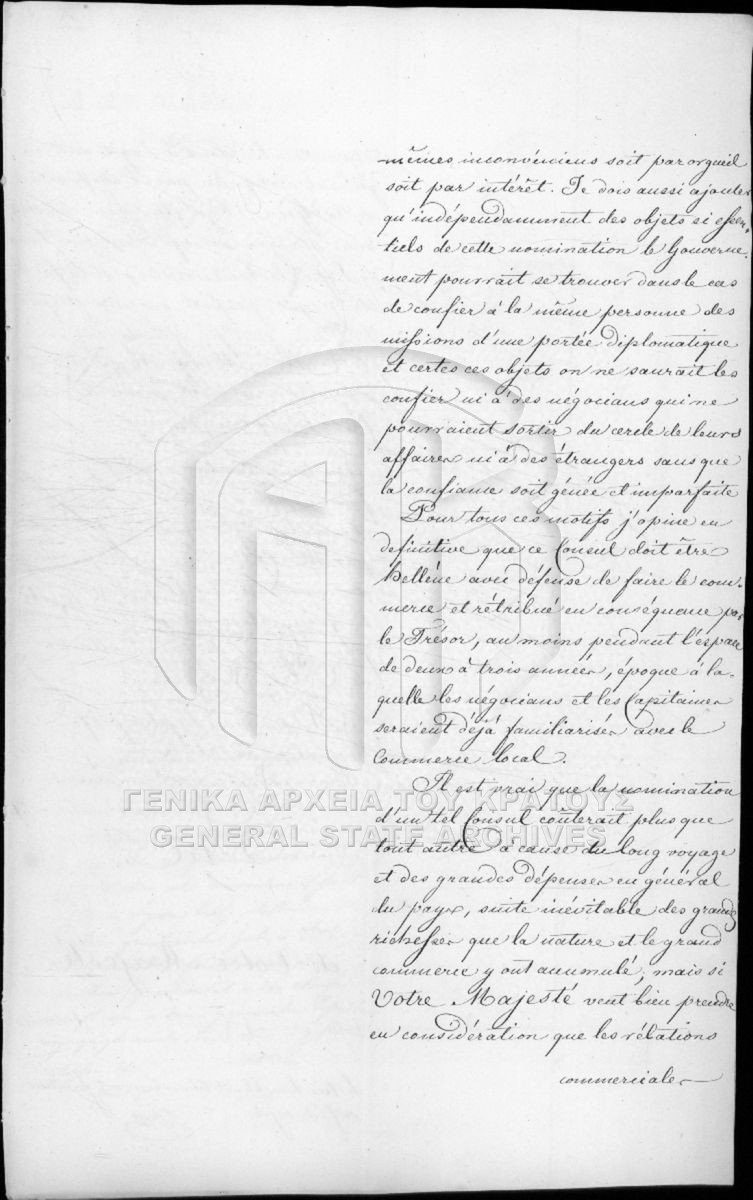 mêmes inconvéniens soit par orgueil
soit par intérêt. Je dois aussi ajouter
qu'indépendamment des objets si essen-
tiels de cette nomination le Gouverne-
ment pourrait se trouver dans le cas
de confier à la même personne des
missions d'une portée diplomatique
et certes ces objets on ne saurait les
confier ni à des négocians qui ne
pourraient sortir du cercle de leurs
affaires ni à des étrangers sans que
la confiance soit génée et imparfaite
Pour tous ces motifs j'opine en
definitive que ce Consul doit être
Hellène avec défense de faire le com-
merce et rétribué en conséquence par
le Trésor, au moins pendant l'espace
de deux à trois années, époque à la-
quelle les négocians et les Capitaines
seraient déjà familiarisés avec le
Commerce local.
Il est vrai que la nomination
d'un tel Consul coûterait plus que
tout autre à cause du long voyage
et des grandes dépenses en général
du pays, suite inévitable des grandes
richesses que la nature et le grand
commerce y ont accumulé, mais si
Votre Majesté veut bien prendre
en considération que les rélations
commerciales
ΓΕΝΙΚΑ ΑΡΧΕΙΑ ΤΟΥ ΚΡΑΤΟΥΣ
GENERAL STATE ARCHIVES